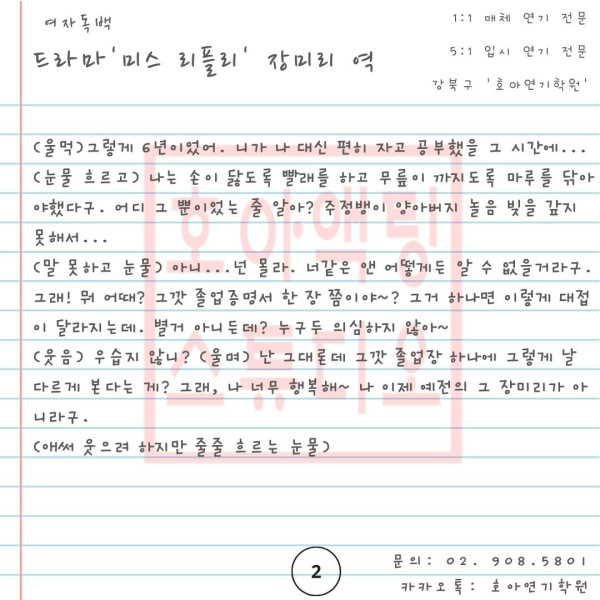 여자독백
1:1 매체 연기 전문
드라마'미스 리플리' 장미리 역
5:1 입시 연기 전문
강북구 '호아연기학원'
(울먹)그렇게 6년이었어. 니가 나 대신 편히 자고 공부했을 그 시간에...
(눈물 흐르고) 나는 손이 닳도록 빨래를 하고 무릎이 까지도록 마루를 닦아
야했다구. 어디 그 뿐이었는 줄 알아? 주정뱅이 양아버지 놀음 빚을 갚지
못해서...
(말 못하고 눈물) 아니...넌 몰라. 너같은 앤 어떻게든 알 수 없을거라구.
그래! 뭐 어때? 그깟 졸업증명서 한 장 쯤이야~? 그거 하나면 이렇게 대접
이 달라지는데. 별거 아니든데? 누구두 의심하지 않아~
(웃음) 우습지 않니? (울며) 난 그대론데 그깟 졸업장 하나에 그렇게 날
다르게 본다는 게? 그래, 나 너무 행복해~ 나 이제 예전의 그 장미리가 아
니라구.
(애써 웃으려 하지만 줄줄 흐르는 눈물)
호아액팅
스튜디오
2
문의: 02. 908.5801
카카오톡: 호아연기학원